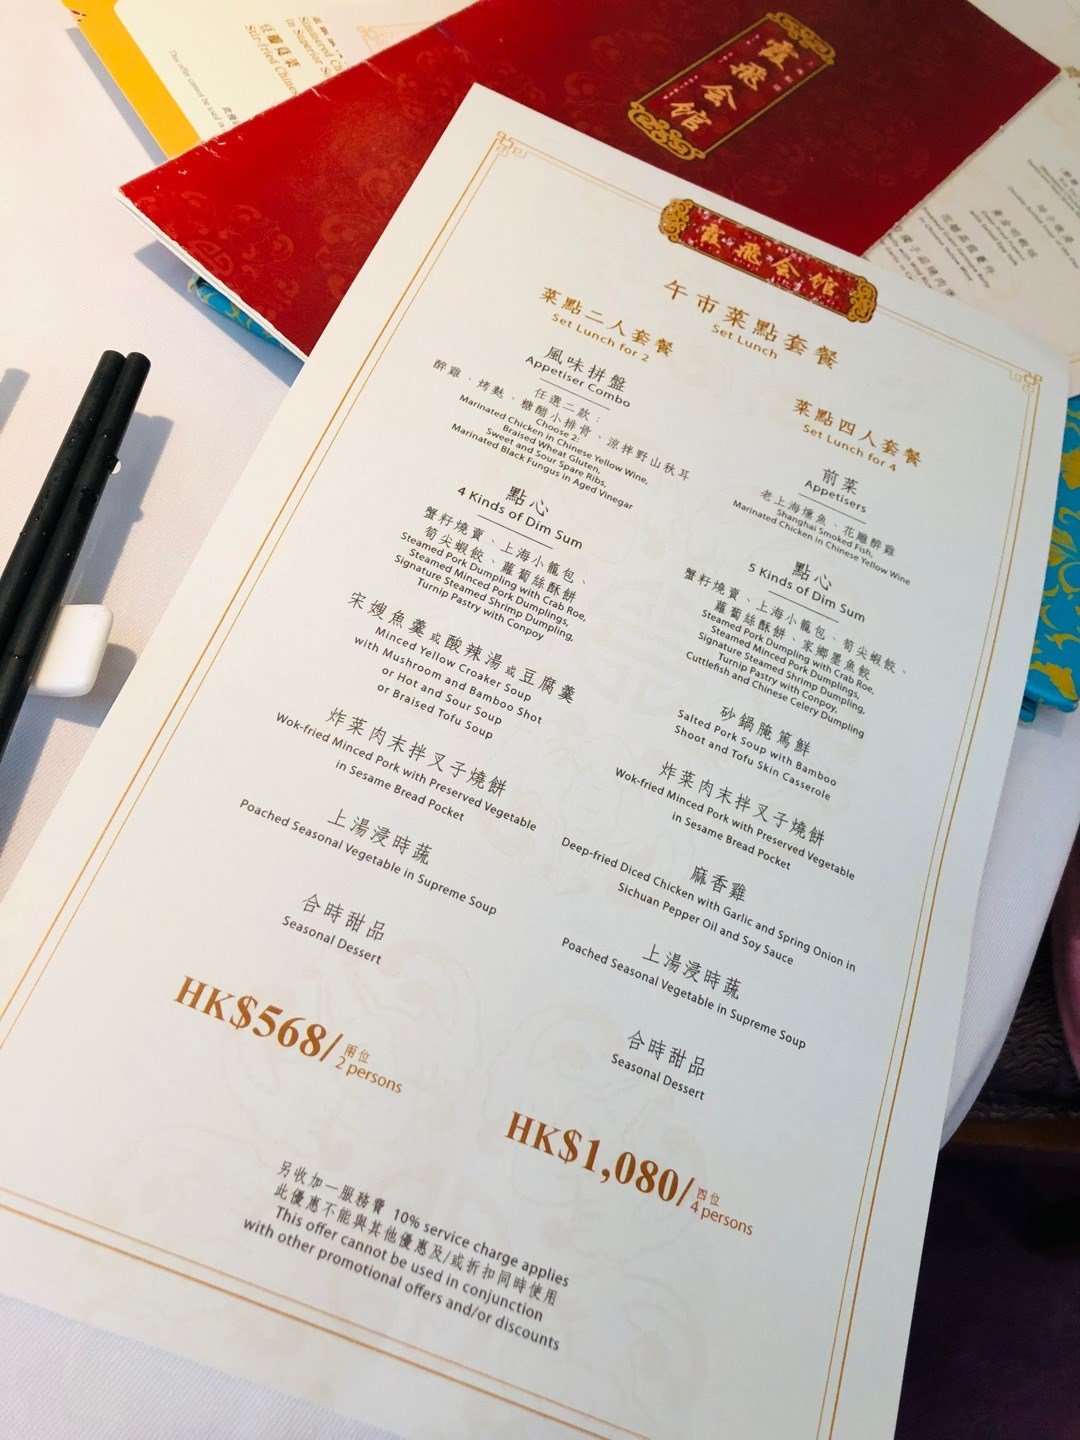 霞飛会馆
霞飛会馆
午市菜點套餐
Set Lunch
菜點二人套餐
Set Lunch for 2
風味拼盤
Appetiser Combo
任選二款：
醉雞、烤麩、糖醋小排骨、涼拌野山秋耳
Choose 2:
Marinated Chicken in Chinese Yellow Wine,
Braised Wheat Gluten,
Sweet and Sour Spare Ribs,
Marinated Black Fungus in Aged Vinegar
點心
4 Kinds of Dim Sum
蟹籽燒賣、上海小籠包、
筍尖蝦餃、蘿蔔絲酥餅
Steamed Pork Dumpling with Crab Roe,
Steamed Minced Pork Dumplings,
Signature Steamed Shrimp Dumpling,
Turnip Pastry with Conpoy
宋嫂魚羹或酸辣湯或豆腐羹
Minced Yellow Croaker Soup
with Mushroom and Bamboo Shot
or Hot and Sour Soup
or Braised Tofu Soup
炸菜肉末拌叉子燒餅
Wok-fried Minced Pork with Preserved Vegetable
in Sesame Bread Pocket
上湯浸時蔬
Poached Seasonal Vegetable in Supreme Soup
合時甜品
Seasonal Dessert
HK$568/兩位
2 persons
菜點四人套餐
Set Lunch for 4
前菜
Appetisers
老上海燻魚、花雕醉雞
Shanghai Smoked Fish,
Marinated Chicken in Chinese Yellow Wine
點心
5 Kinds of Dim Sum
蟹籽燒賣、上海小籠包、筍尖蝦餃、
蘿蔔絲酥餅、家鄉墨魚餃
Steamed Pork Dumpling with Crab Roe,
Steamed Minced Pork Dumplings,
Signature Steamed Shrimp Dumpling,
Turnip Pastry with Conpoy,
Cuttlefish and Chinese Celery Dumpling
砂鍋腌篤鮮
Salted Pork Soup with Bamboo
Shoot and Tofu Skin Casserole
炸菜肉末拌叉子燒餅
Wok-fried Minced Pork with Preserved Vegetable
in Sesame Bread Pocket
麻香雞
Deep-fried Diced Chicken with Garlic and Spring Onion in
Sichuan Pepper Oil and Soy Sauce
上湯浸時蔬
Poached Seasonal Vegetable in Supreme Soup
合時甜品
Seasonal Dessert
HK$1,080/四位
4 persons
另收加一服務費 10% service charge applies
此優惠不能與其他優惠及/或折扣同時使用
This offer cannot be used in conjunction
with other promotional offers and/or discounts